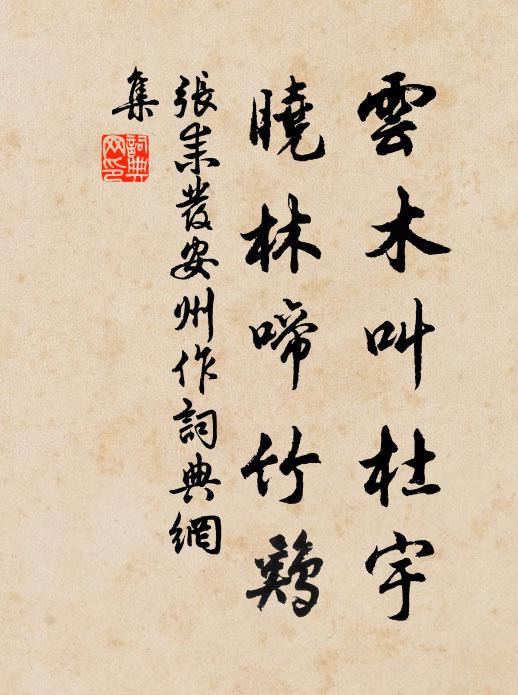 雲木叫杜宇
曉林啼竹鷄
張耒發安州作詞典網
集
詞典
网印